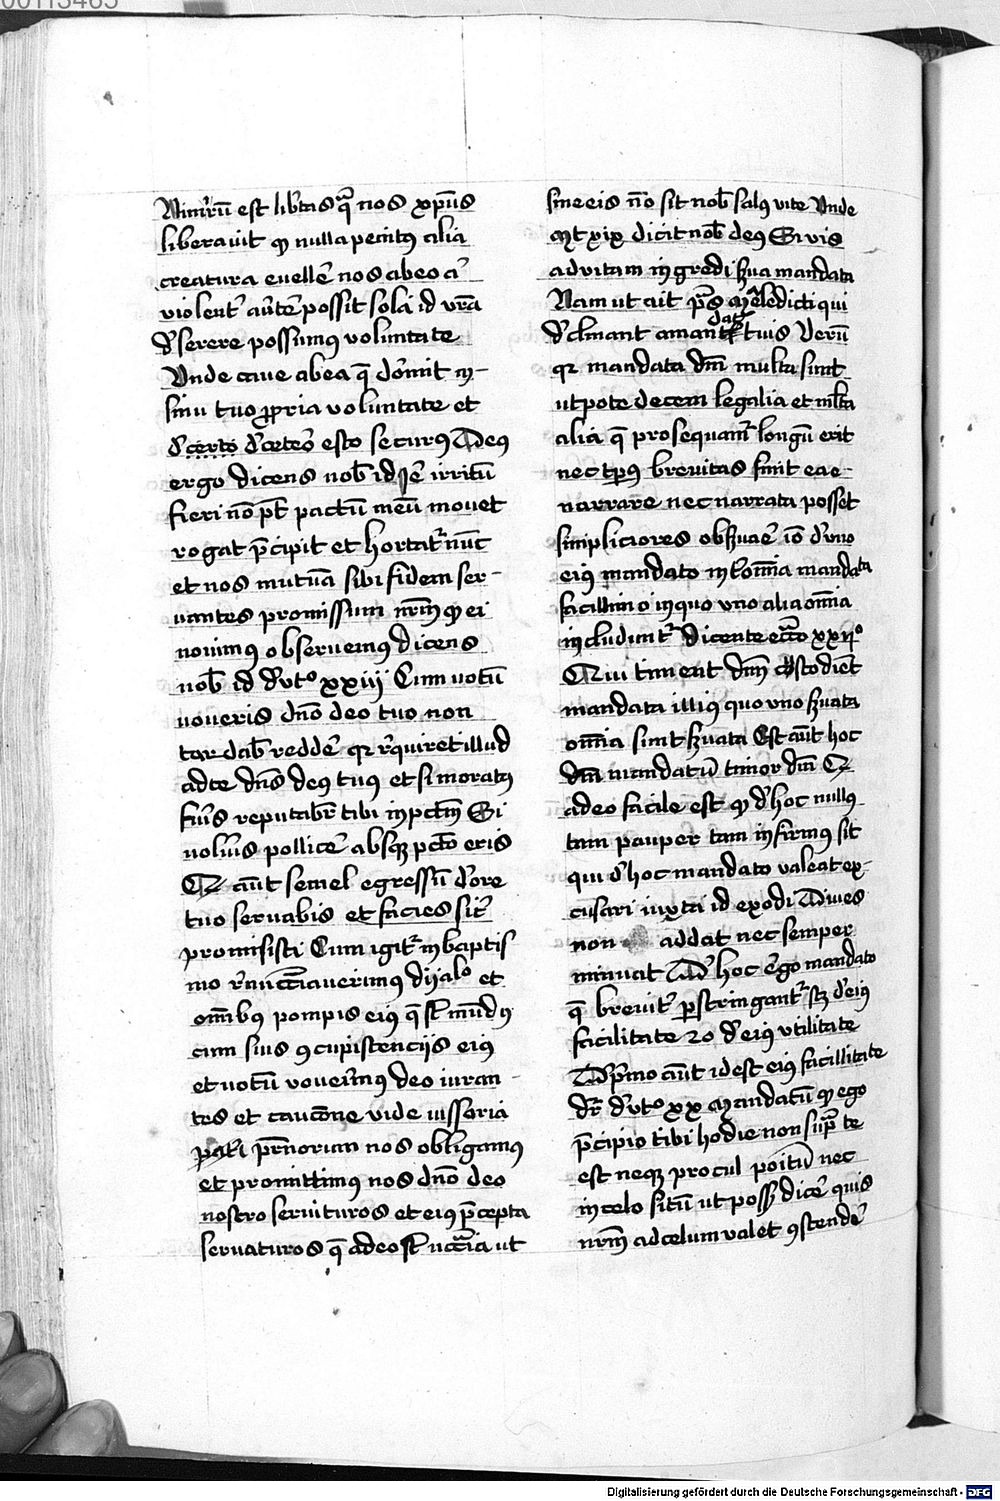 00113485
Nimirū est lib̄tas q̄ nos xp̄us
liberauit qꝫ nulla penitꝰ alia
creatura euellē nos ab eo aͥ
violent᷑ aūt̄e possit sola id vr̄a
d̄serere possumꝰ voluntate
Vnde caue ab ea q̄ dormit in
sinu tuo ꝓpria voluntate et
d̄certo d̄ceteͦ esto securꝰ Deꝰ
ergo dicens nob̄ id irritū
fieri nō pt̄ pactū meū mouet
rogat p̄cipit et hortat᷑ nūc
et nos mutuā sibi fidem ser-
uantes promissum nr̄m qꝫ ei
nouimꝰ obseruemꝰ dicens
nob̄ id d̄utͦ xxiij Cum uotū
uoueris dn̄o deo tuo non
tardab̄ reddē qr r̄quiret illud
ad te dn̄s deꝰ tuꝰ et si moratꝰ
fūis reputabr̄ tibi in pctm̄ Si
nolūis pollicē absqꝫ pctō eris
Qꝫ aūt semel egressū d̄ ore
tuo seruabis et facies sic᷑
promisisti Cum igit᷑ in baptis
mo r̄nūctiauerimꝰ dyaloͦ et
om̄ibꝰ pompis eiꝰ q̄ st̄ mūdꝰ
cum suis ꝯcupistencijs eiꝰ
et uotū vouerīmꝰ deo iuran-
tes et caucōne
nos obligamꝰ
et promittimꝰ nos dn̄o deo
nostro seruituros et eiꝰ p̄cepta
seruaturos q̄ adeo st̄ nccāia ut
sine eis nō sit nob̄ salꝰ vite Vnde
Mt xix dicit nob̄ deꝰ Si vis
ad vitam ingredi s̄ua mandata
Nam ut ait p̄s Maledicti qui
d̄clinant a mandatꝭ tuis Verū
qr mandata dn̄i multa sunt
utpote decem legalia et ml̄ta
alia q̄ prosequant᷑ longū erit
nec tp̄ꝰ breuitas sinit ea e-
narrare nec narrata posset
simpliciores obs̄uaē iō d̄ vno
eiꝰ mandato int̄ om̄ia mandata
facillimo in quo vno alia om̄ia
includunt᷑ Dicente eccͦ xxijͦ
Qui timent dm̄ custodiēt
mandata illiꝰ quo vno s̄uata
om̄ia sunt s̄uata Est aūt hoc
dn̄i mandatū timor dn̄i Qꝫ
adeo facile est qꝫ d̄ hoc nullꝰ
tam pauper tam infirmꝰ sit
qui d̄ hoc mandato valeat ex-
cusari iuxta id exodi Diues
non addat nec semper
minuat Ad hoc ergo mandato
q̄ breuit᷑ ꝑstringant᷑ sꝫ d̄ eiꝰ
facilitate 2o d̄ eiꝰ vtilitate
Ad p̄mo aūt id est eiꝰ facillitate
dr̄ d̄utͦ xx Mandatū qꝫ ego
p̄cipio tibi hodie non sup̄ te
est neqꝫ procul poitū nec
in celo sitū ut possꝫ dicē quis
nr̄m ad celum valet ꝯstendē
Digitalisierung gefördert durch die Deutsche Forschungsgemeinschaft - DFG